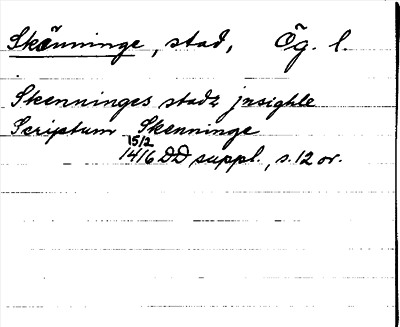 Skänninge, stad, Ög. l.
Skenninges stadz jnsighle
Scriptum Skenninge
15/2
1416 DD suppl., s. 12 or.